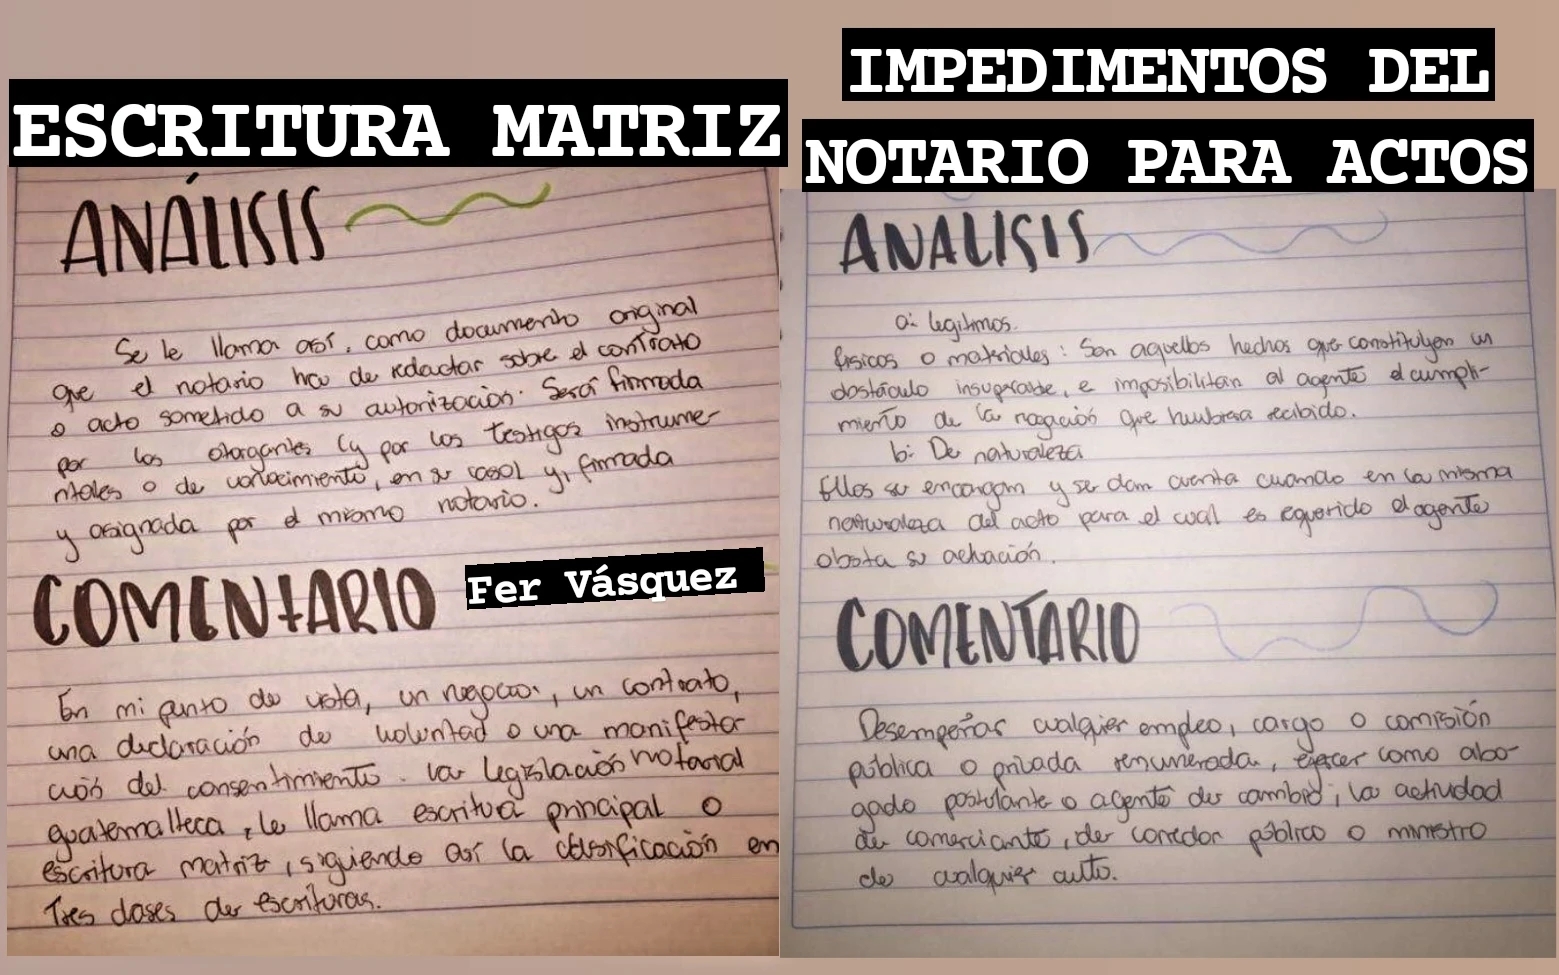 ESCRITURA MATRIZ
ANÁLISIS
Se le llama así, como documento original
que el notario ha de redactar sobre el contrato
o acto sometido a su autorización. Será firmada
por los otorgantes (y por los testigos instrume-
ntales o de conocimiento, en su caso) y, firmada
y asignada por el mismo notario.
COMENTARIO
Fer Vásquez
En mi punto de vista, un negocio, un contrato,
una declaración de voluntad o una manifesta
ción del consentimiento. La legislación notarial
guatemalteca, le llama escritura principal o
escritura matriz, siguiendo así la clasificación en
Tres clases de escrituras.
IMPEDIMENTOS DEL
NOTARIO PARA ACTOS
ANALISIS
a: legitimos.
físicos o materiales: Son aquellos hechos que constituyen un
obstáculo insuperable, e imposibilitan al agente el cumpli-
miento de la rogación que hubiera recibido.
b: De naturaleza
Ellos se encargan y se dan cuenta cuando en la misma
naturaleza del acto para el cual es requerido el agente
obsta su actuación.
COMENTARIO
Desempeñar cualquier empleo, cargo o comisión
pública o privada remunerada, ejercer como abo-
gado postulante o agente de cambio, la actividad
de comerciante, de corredor público o ministro
de cualquier culto.